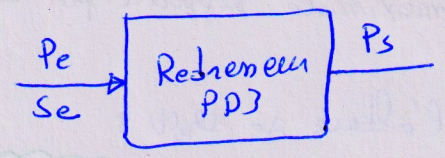 Pe
Se
Redresseur
PD3
Ps